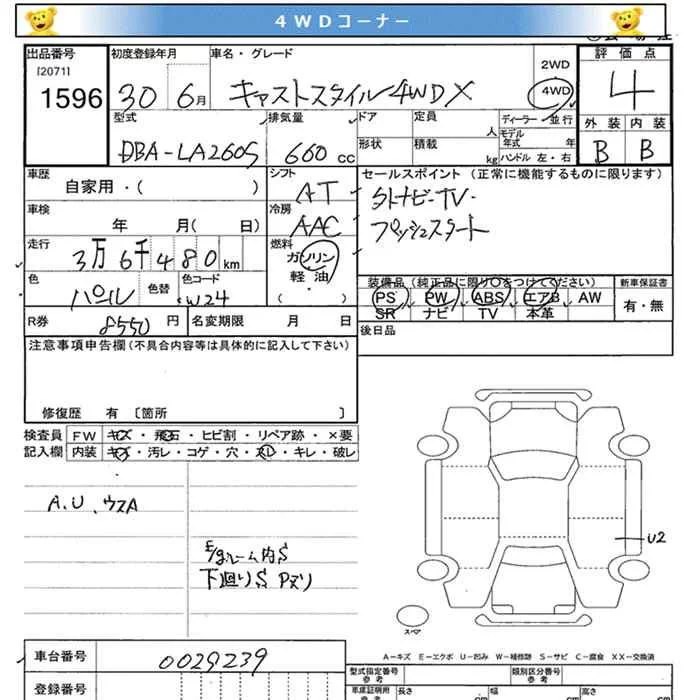 4WDコーナー
出品番号 初度登録年月 車名・グレード 2WD 評価点
[2071]
1596 30 6月 キャストスタイル4WD X 4WD 4
型式 排気量 ドア 定員 人 ディーラー・並行 外装 内装
DBA-LA260S 660 cc 形状 積載 kg モデル年式 年 ハンドル 左・右 B B
車歴 シフト セールスポイント(正常に機能するものに限ります)
自家用・( ) AT 外ナビ・TV・
車検 冷房 プッシュスタート
年 月( 日) AAC
走行 燃料
3万6千480km ガソリン
軽油
( ・ )
色 色替 色コード 装備品(純正品に限り〇をつけてください) 新車保証書
パール W24 PS PW ABS エアB AW 有・無
SR ナビ TV 本革
R券 8550円 名変期限 月 日 後日品
注意事項申告欄(不具合内容等は具体的に記入して下さい)
修復歴 有 〔箇所 〕
検査員 FW キズ・飛石・ヒビ割・リペア跡・×要
記入欄 内装 キズ・汚レ・コゲ・穴・スレ・キレ・破レ
A.U、ウスA
E/gルーム内S
下廻りS Pヌリ
U2
スペア
A−キズ E−エクボ U−凹み W−補修跡 S−サビ C−腐食 XX−交換済
車台番号 0029239
登録番号
型式指定番号 参考 類別区分番号 参考
車庫証明用 参考 長さ cm 幅 cm 高さ cm